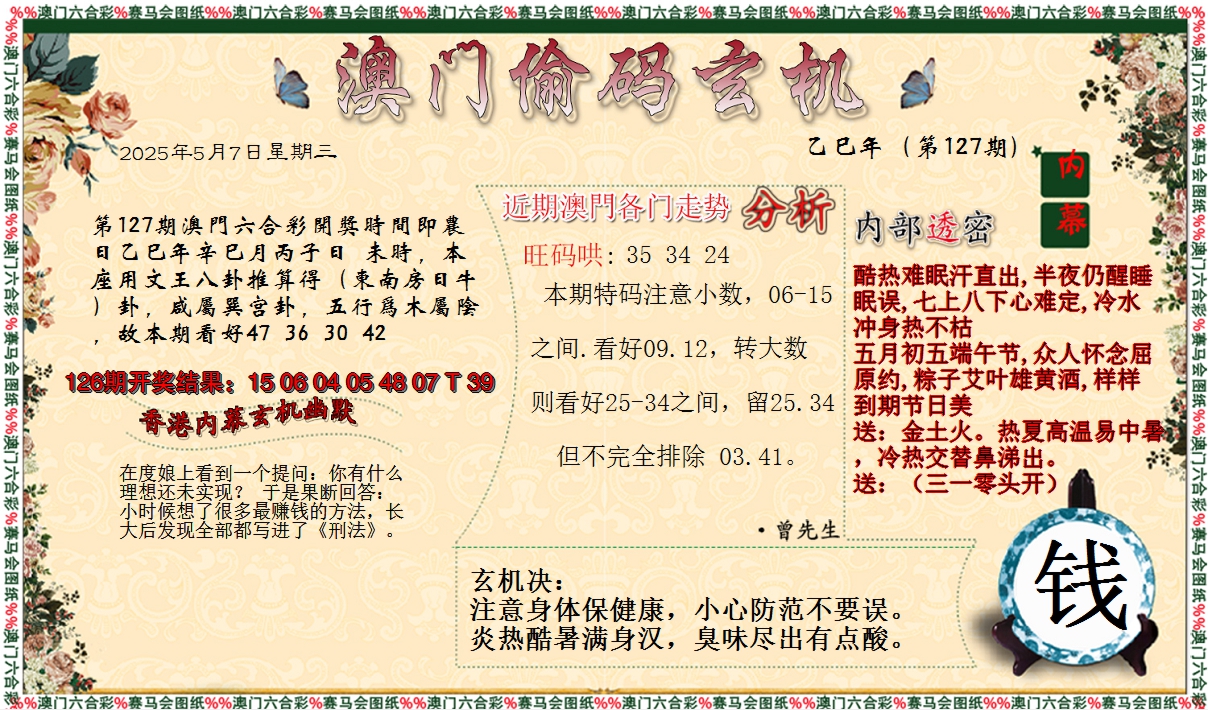 %%澳门六合彩%赛马会图纸%%澳门六合彩%赛马会图纸%%澳门六合彩%赛马会图纸%%澳门六合彩%赛马会图纸%%澳门六合彩%赛马会图纸%%澳门六合彩%赛马会图纸%%
澳门偷码玄机
2025年5月7日星期三
乙巳年（第127期）
内
幕
第127期澳門六合彩開獎時間即農
日乙巳年辛巳月丙子日 未時，本
座用文王八卦推算得（東南房日牛
）卦，咸屬巽宫卦，五行爲木屬陰
，故本期看好47 36 30 42
126期开奖结果：15 06 04 05 48 07 T 39
香港内幕玄机幽默
在度娘上看到一个提问：你有什么
理想还未实现？ 于是果断回答：
小时候想了很多最赚钱的方法，长
大后发现全部都写进了《刑法》。
近期澳門各门走势 分析
旺码哄: 35 34 24
本期特码注意小数，06-15
之间.看好09.12，转大数
则看好25-34之间，留25.34
但不完全排除 03.41。
·曾先生
内部透密
酷热难眠汗直出,半夜仍醒睡
眠误,七上八下心难定,冷水
冲身热不枯
五月初五端午节,众人怀念屈
原约,粽子艾叶雄黄酒,样样
到期节日美
送：金土火。热夏高温易中暑
，冷热交替鼻涕出。
送：（三一零头开）
玄机决：
注意身体保健康，小心防范不要误。
炎热酷暑满身汉，臭味尽出有点酸。
钱
%%澳门六合彩%赛马会图纸%%澳门六合彩%赛马会图纸%%澳门六合彩%赛马会图纸%%澳门六合彩%赛马会图纸%%澳门六合彩%赛马会图纸%%澳门六合彩%赛马会图纸%%